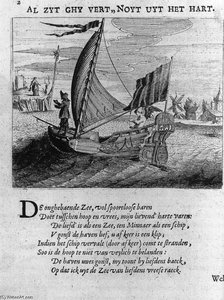 2
AL ZYT GHY VERT, NOYT UYT HET HART.
DE onghebaende Zee, vol spoorelose baren
Doet tusschen hoop en vrees, mijn lievend' harte varen:
De liefd' is als een Zee, een Minnaer als een schip,
V gonst de haven lief, u afkeer is een klip;
Indien het schip vervalt (door afkeer) comt te stranden,
Soo is de hoop te niet van veylich te belanden:
De haven uwes gonst, my toont by liefdens baeck,
Op dat ick uyt de Zee van liefdens vreese raeck.
Wel